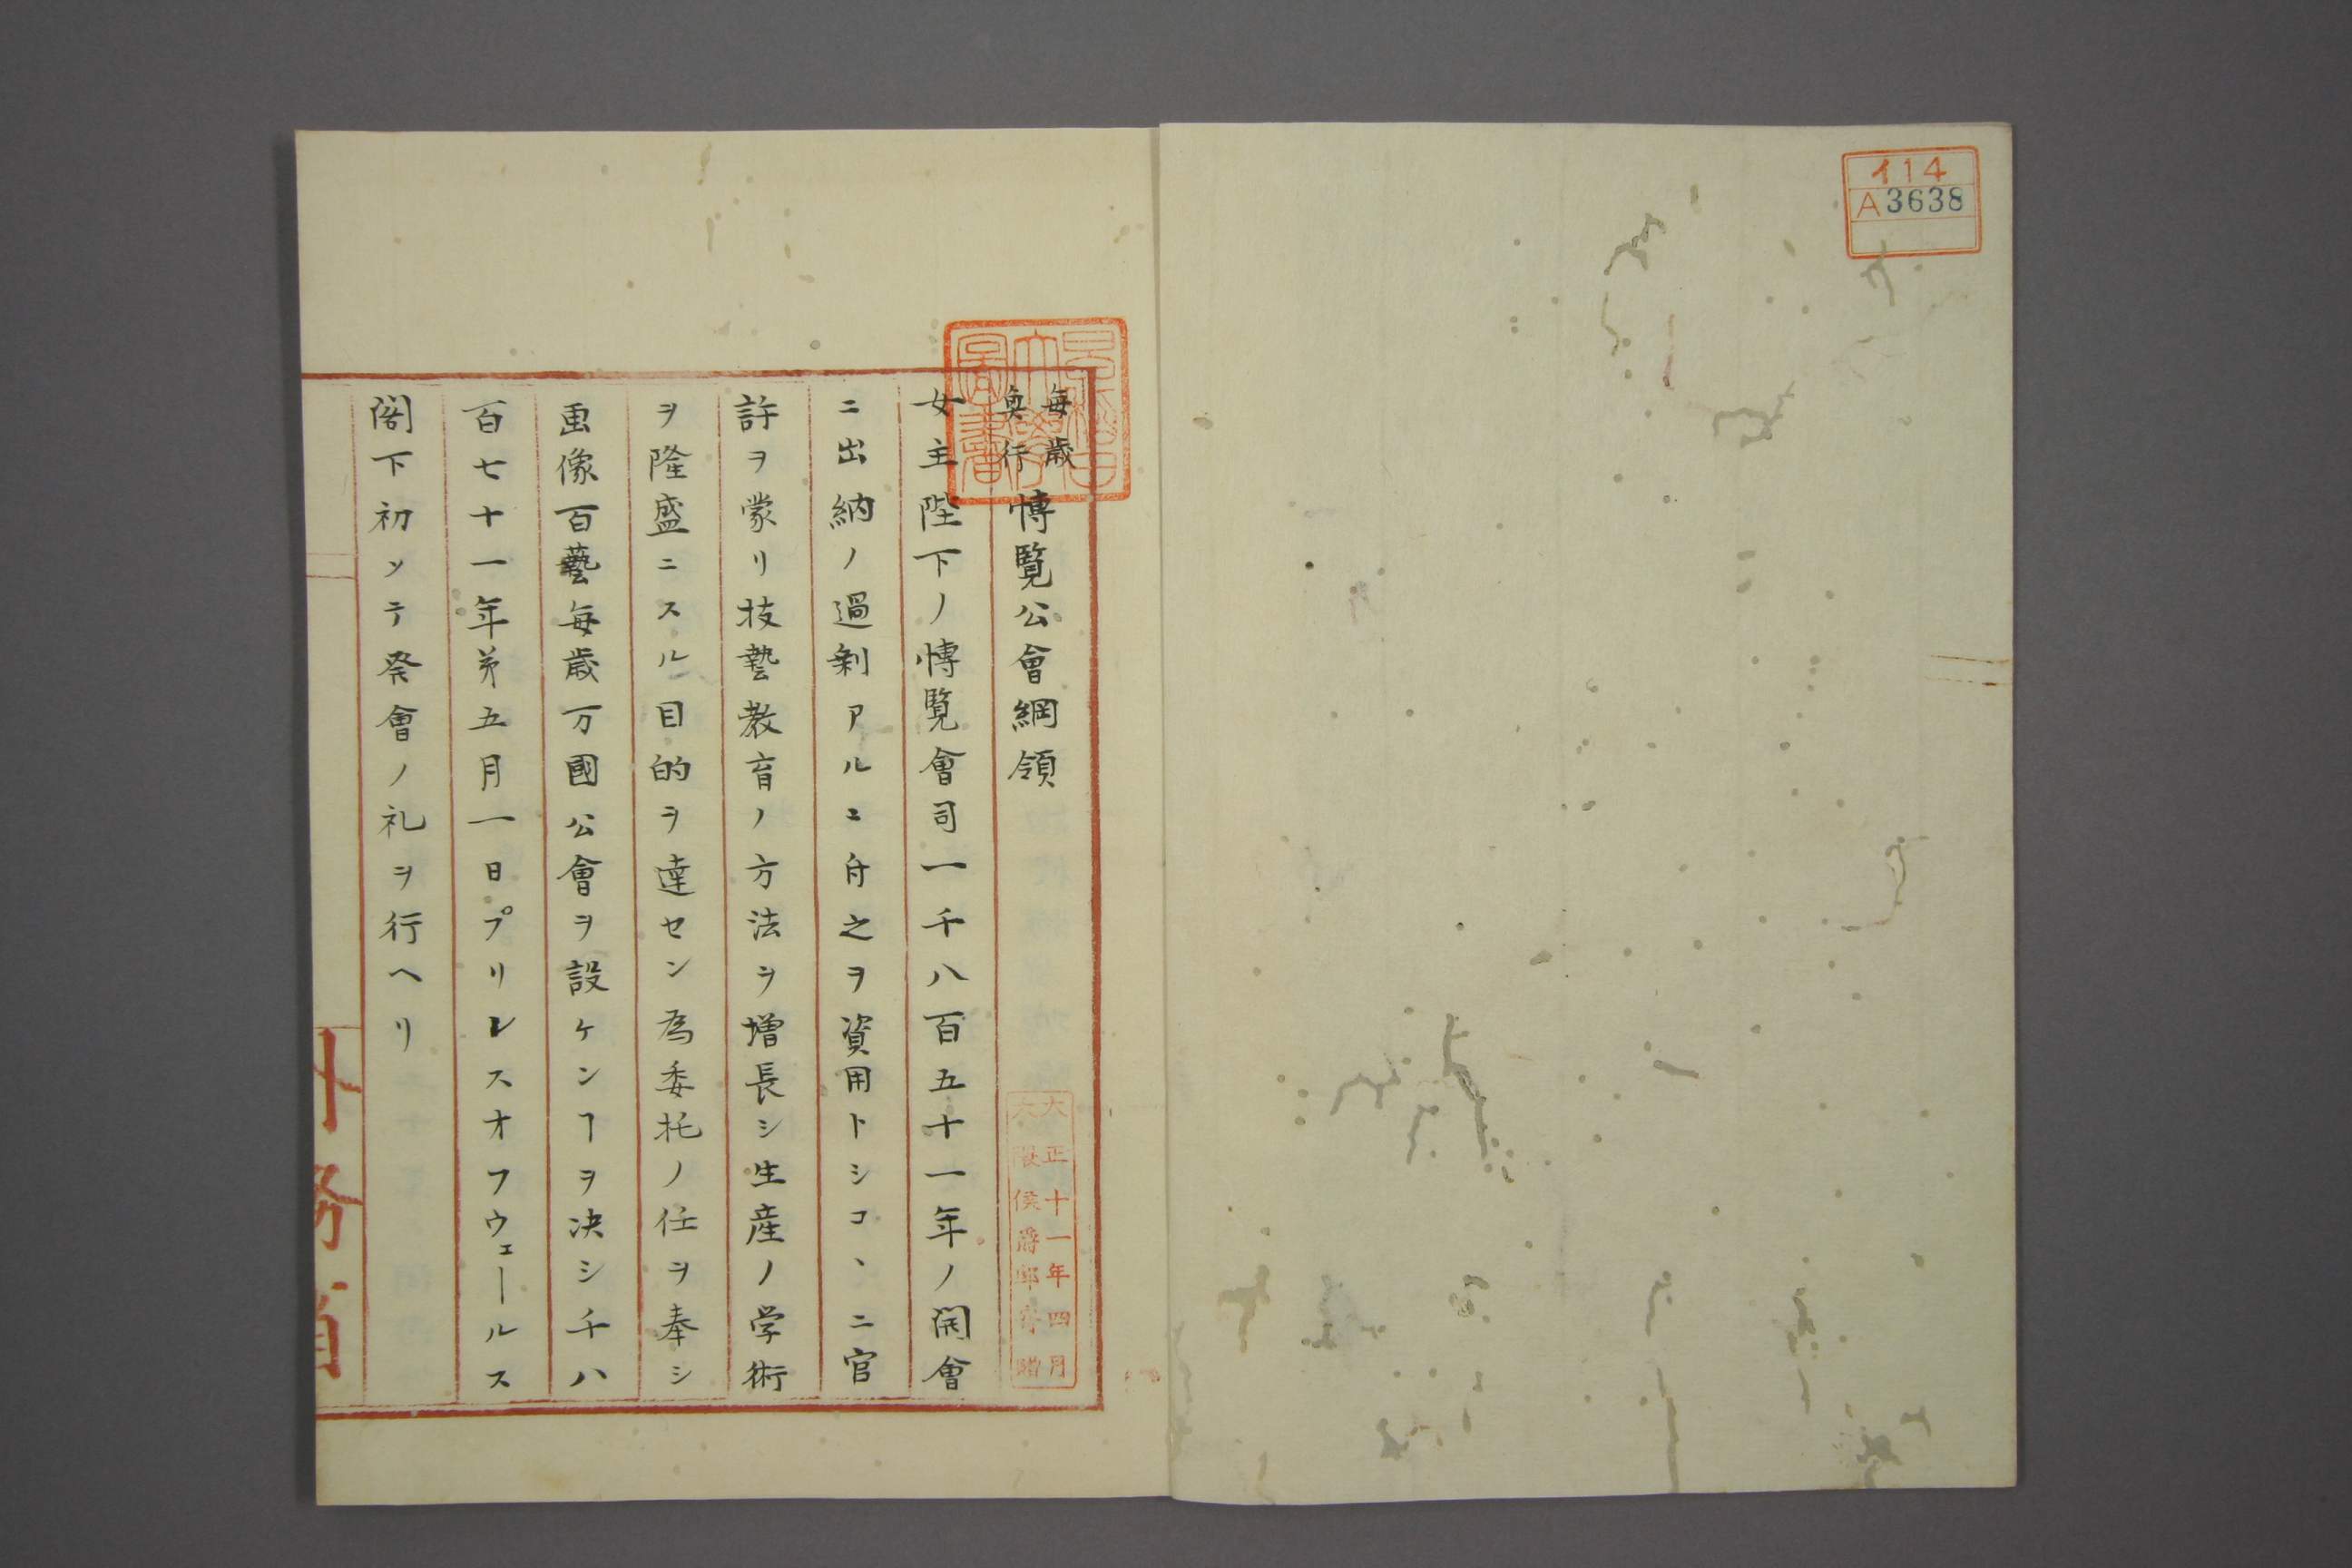 イ14
A3638
毎歳
奥行
博覧公會綱領
女主陛下ノ博覧會司一千八百五十一年ノ開會
ニ出納ノ過剰アルニ付之ヲ資用トシコヽニ官
許ヲ蒙リ技藝教育ノ方法ヲ増長シ生産ノ学術
ヲ隆盛ニスル目的ヲ達セン為委托ノ任ヲ奉シ
画像百藝毎歳万國公會ヲ設ケンヿヲ决シ千八
百七十一年第五月一日プリンスオフウェールス
閣下初ソテ祭會ノ礼ヲ行ヘリ
大正十一年四月
大隈侯爵邸寄贈
早稲田大學圖書
外務省